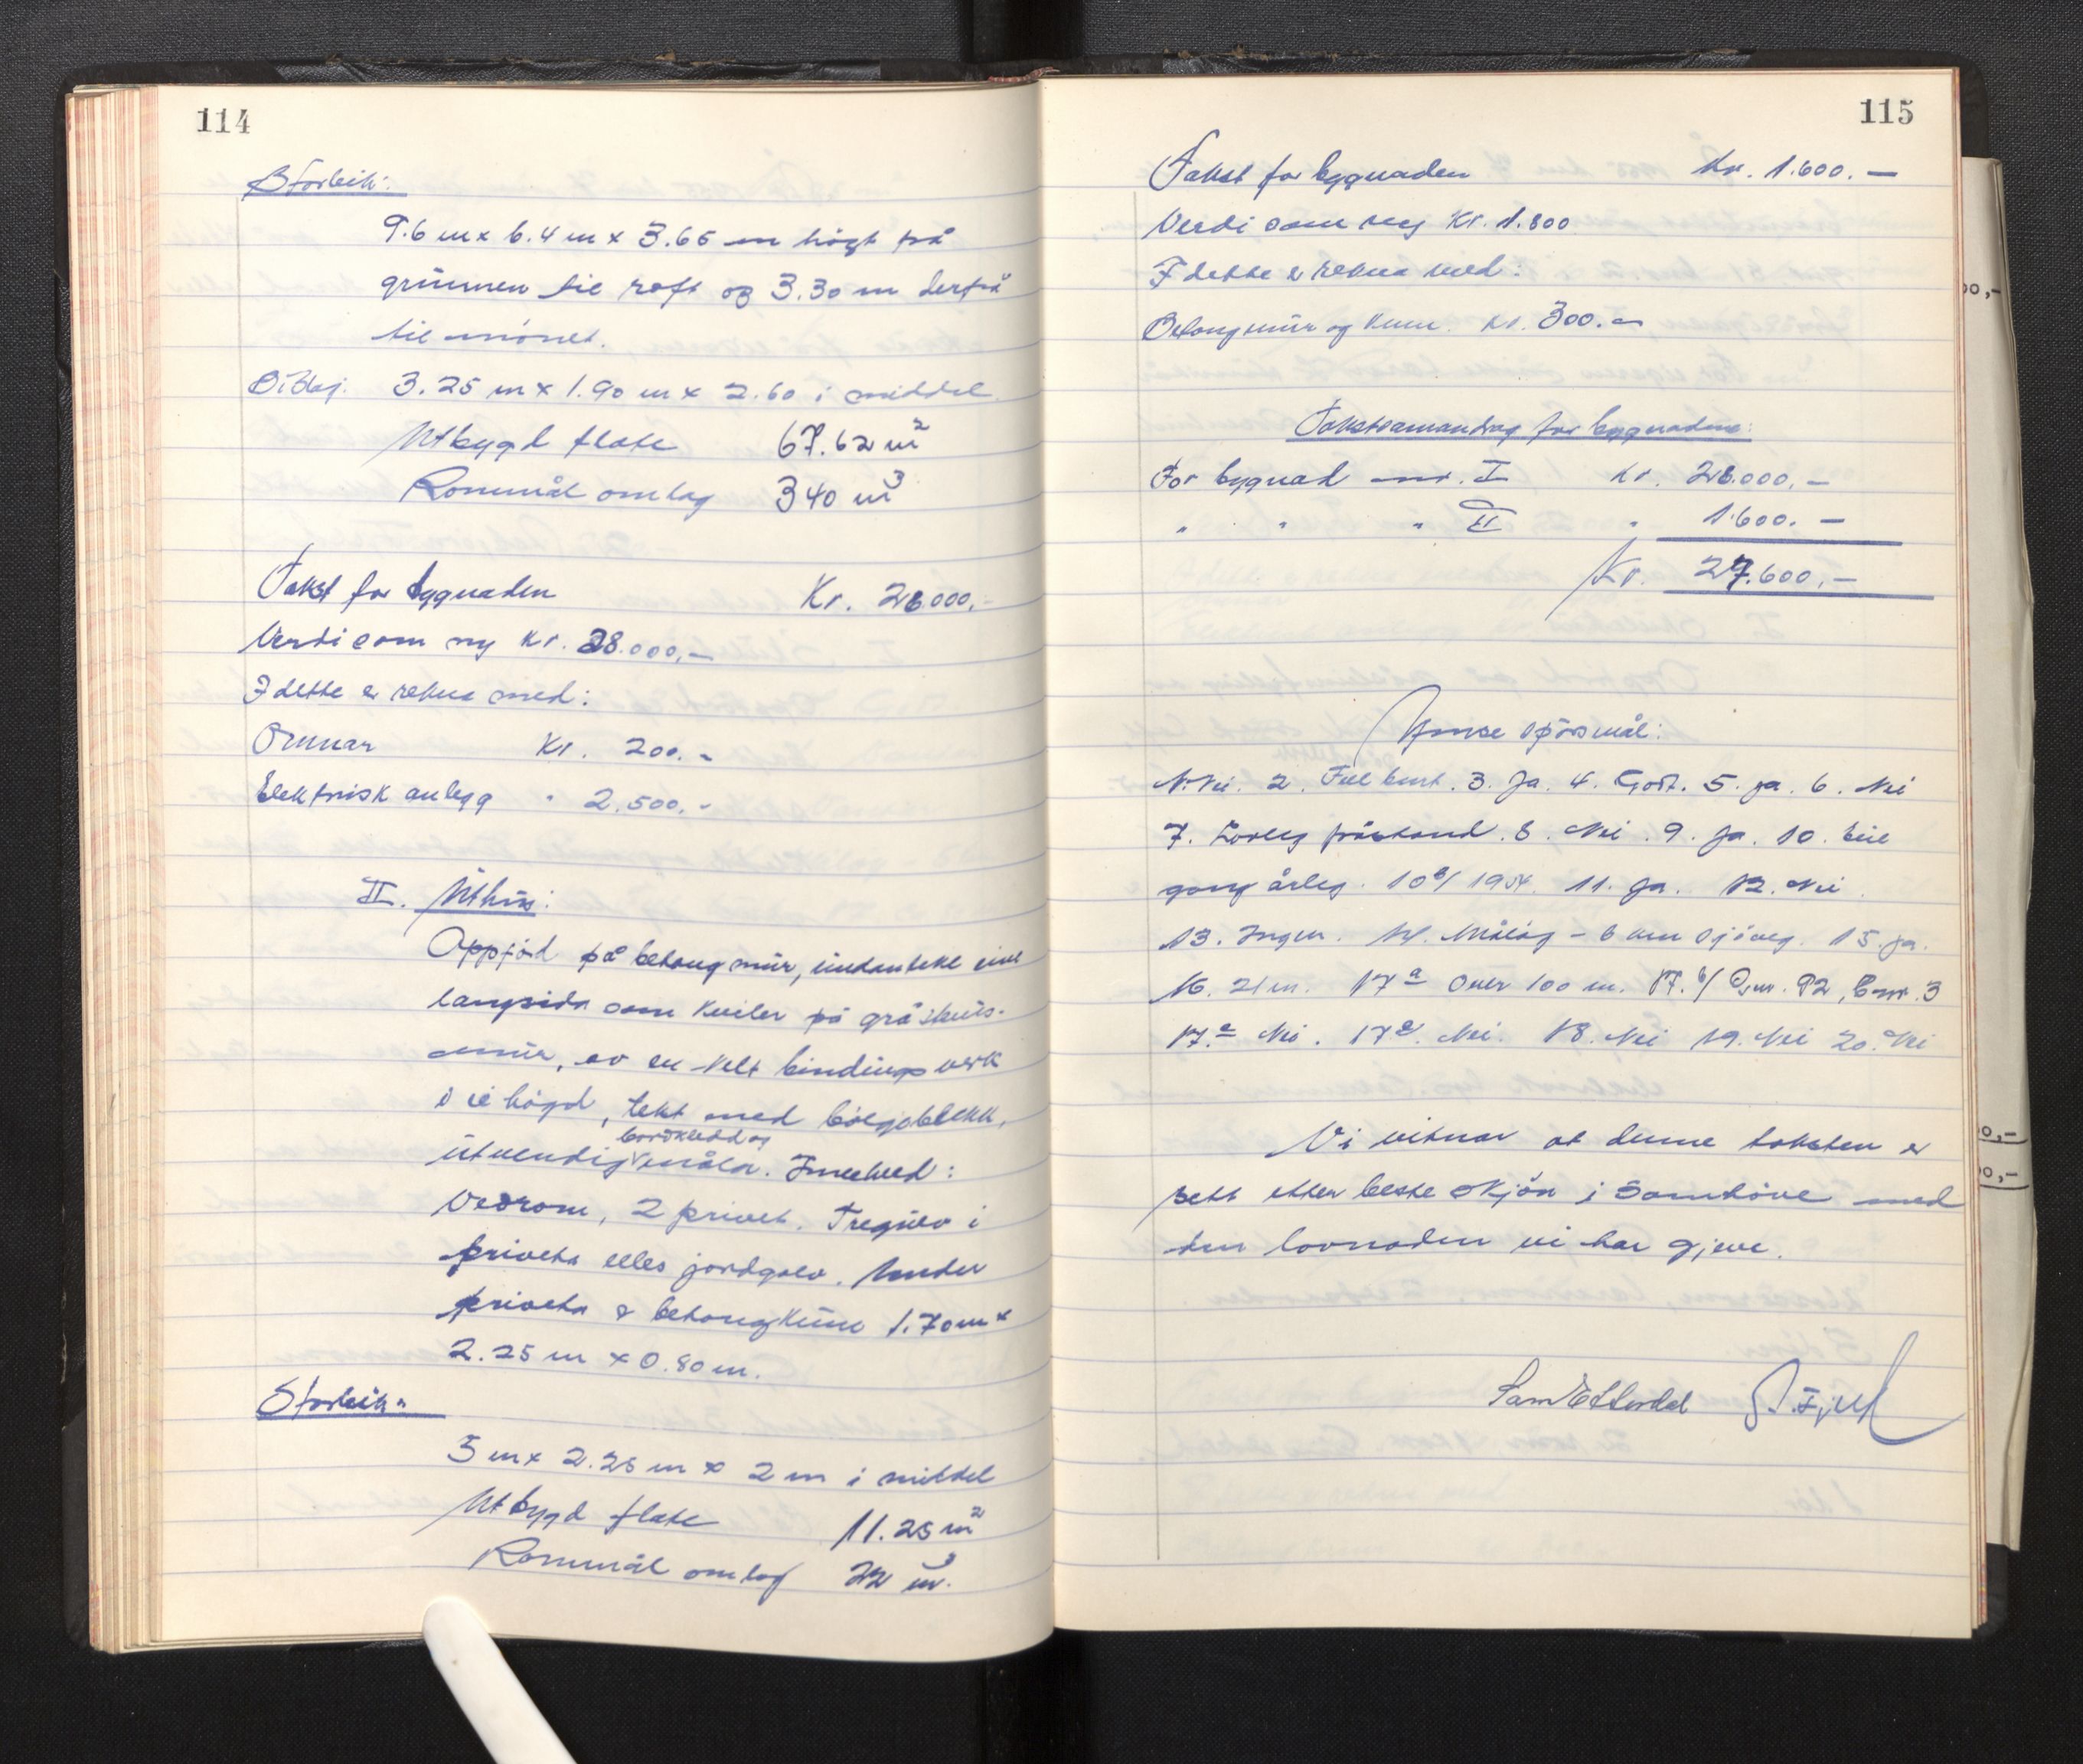 114
Storleik:
9.6 m x 6.4 m x 3.65 m högt frå
grunnen til raft og 3.30 m derfrå
til mönet.
Bislag. 3.25 m x 1.90 m x 2.60 i middel
Utbygd flate 67.62 m²
Rommål omlag 340 m³
Takst for bygnaden Kr. 26.000,-
Verdi som ny Kr. 38.000,-
I dette er rekna med:
Omnar Kr. 200.-
Elektrisk anlegg " 2.500.-
II. Uthus:
Oppförd på betongmur, undanteke eine
langsida som kviler på gråsteins-
mur, av enkelt bindingsverk
i ei högd, tekt med bölgjeblekk,
utvendig bordkledd og måla. Innehald:
Vedrom, 2 privet. Tregolv i
priveta elles jordgolv. Under
priveta er betongkum 1.70 m x
2.25 m x 0.80 m.
Storleik:
5 m x 2.25 m x 2 m i middel
Utbygd flate 11.25 m²
Rommål omlag 22 m³.
115
Takst for bygnaden Kr. 1.600.-
Verdi som ny Kr. 1.800
I dette er rekna med:
Betongmur og kum. Kr. 300.-
Takstsamandrag for bygnadene:
For bygnad nr. I Kr. 26.000.-
" " " II " 1.600.-
Kr. 27.600,-
Ymse spörsmål:
1. Nei. 2. 3. Ja. 4. Godt. 5. Ja. 6. Nei
7. Lovleg fråstand. 8. Nei. 9. Ja. 10. Ein
gong årleg. 10 1954. 11. Ja. 12. Nei.
13. Ingen. 14. Måløy - 6 km sjöveg. 15. Ja.
16. 21 m. 17a Over 100 m. 17.b/ Gnr. 92, Bnr. 3
17.c Nei. 17d. Nei. 18. Nei 19. Nei 20. Nei
Vi vitnar at denne taksten er
sett etter beste skjön i samhöve med
den lovnaden vi har gjeve.